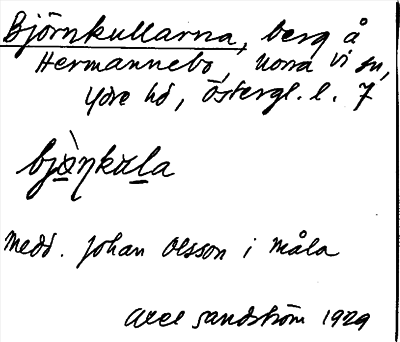 Björnkullarna, berg å
Hermannebo, norra Vi sn,
Ydre hd, Östergl. l. 7
bjὼnkula
Medd. Johan Olsson i Måla
Axel Sandström 1929